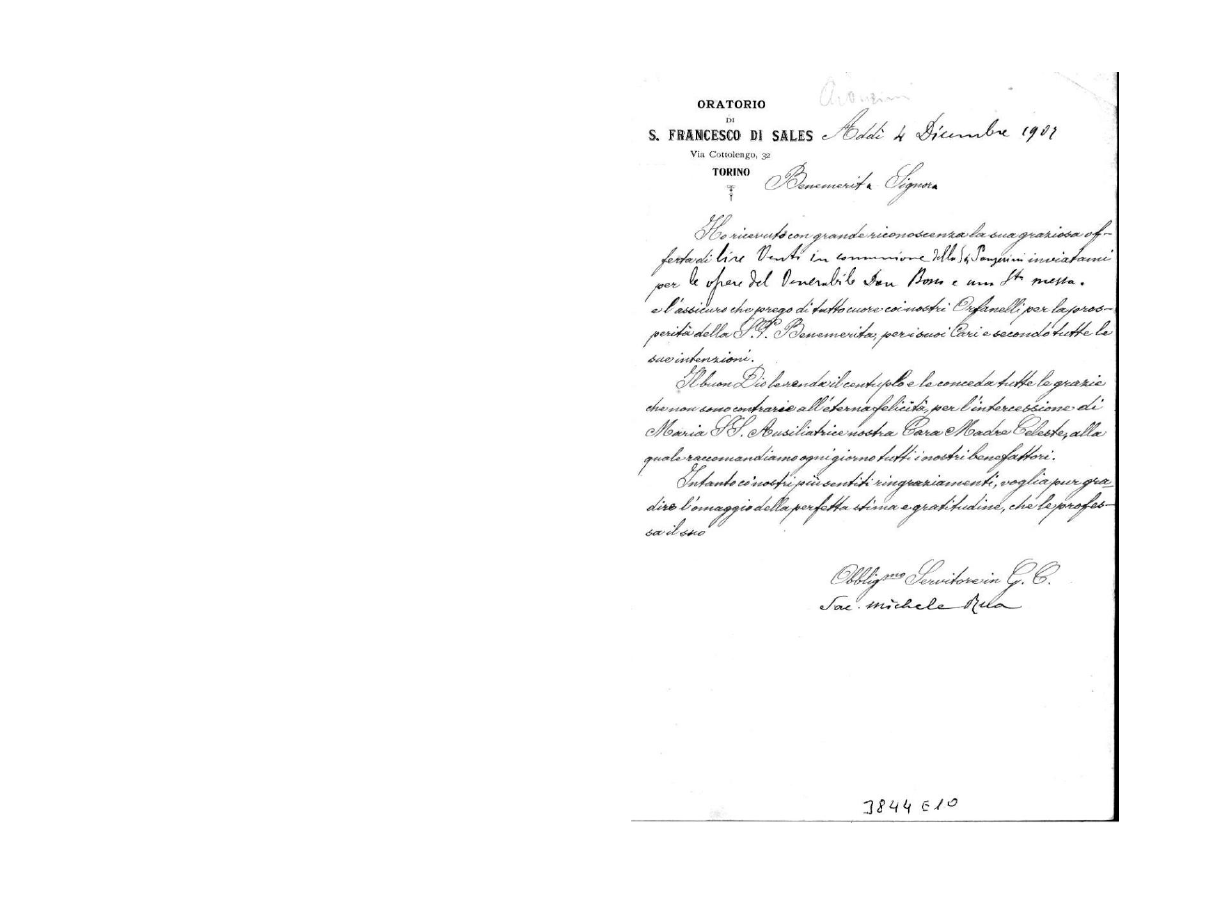 ORATORIO
DI
S. FRANCESCO DI SALES
Via Cottolengo, 32
TORINO
Addì 4 Dicembre 1907
Benemerita Signora
Ho ricevuto con grande riconoscenza la sua graziosa of-
ferta di lire Venti in comunione della inviatami
per le opere del Venerabile Don Bosco e una Sta messa.
e l'assicuro che prego di tutto cuore coi nostri Orfanelli per la pros-
perità della S. V. Benemerita, per i suoi Cari e secondo tutte le
sue intenzioni.
Il buon Dio le renda il centuplo e le conceda tutte le grazie
che non sono contrarie all'eterna felicità, per l'intercessione di
Maria SS. Ausiliatrice nostra Cara Madre Celeste, alla
quale raccomandiamo ogni giorno tutti i nostri benefattori.
Intanto coi nostri più sentiti ringraziamenti, voglia pur gra-
dire l'omaggio della perfetta stima e gratitudine, che le profes-
sa il suo
Obbligmo Servitore in G. C.
Sac. Michele Rua
3844 E10